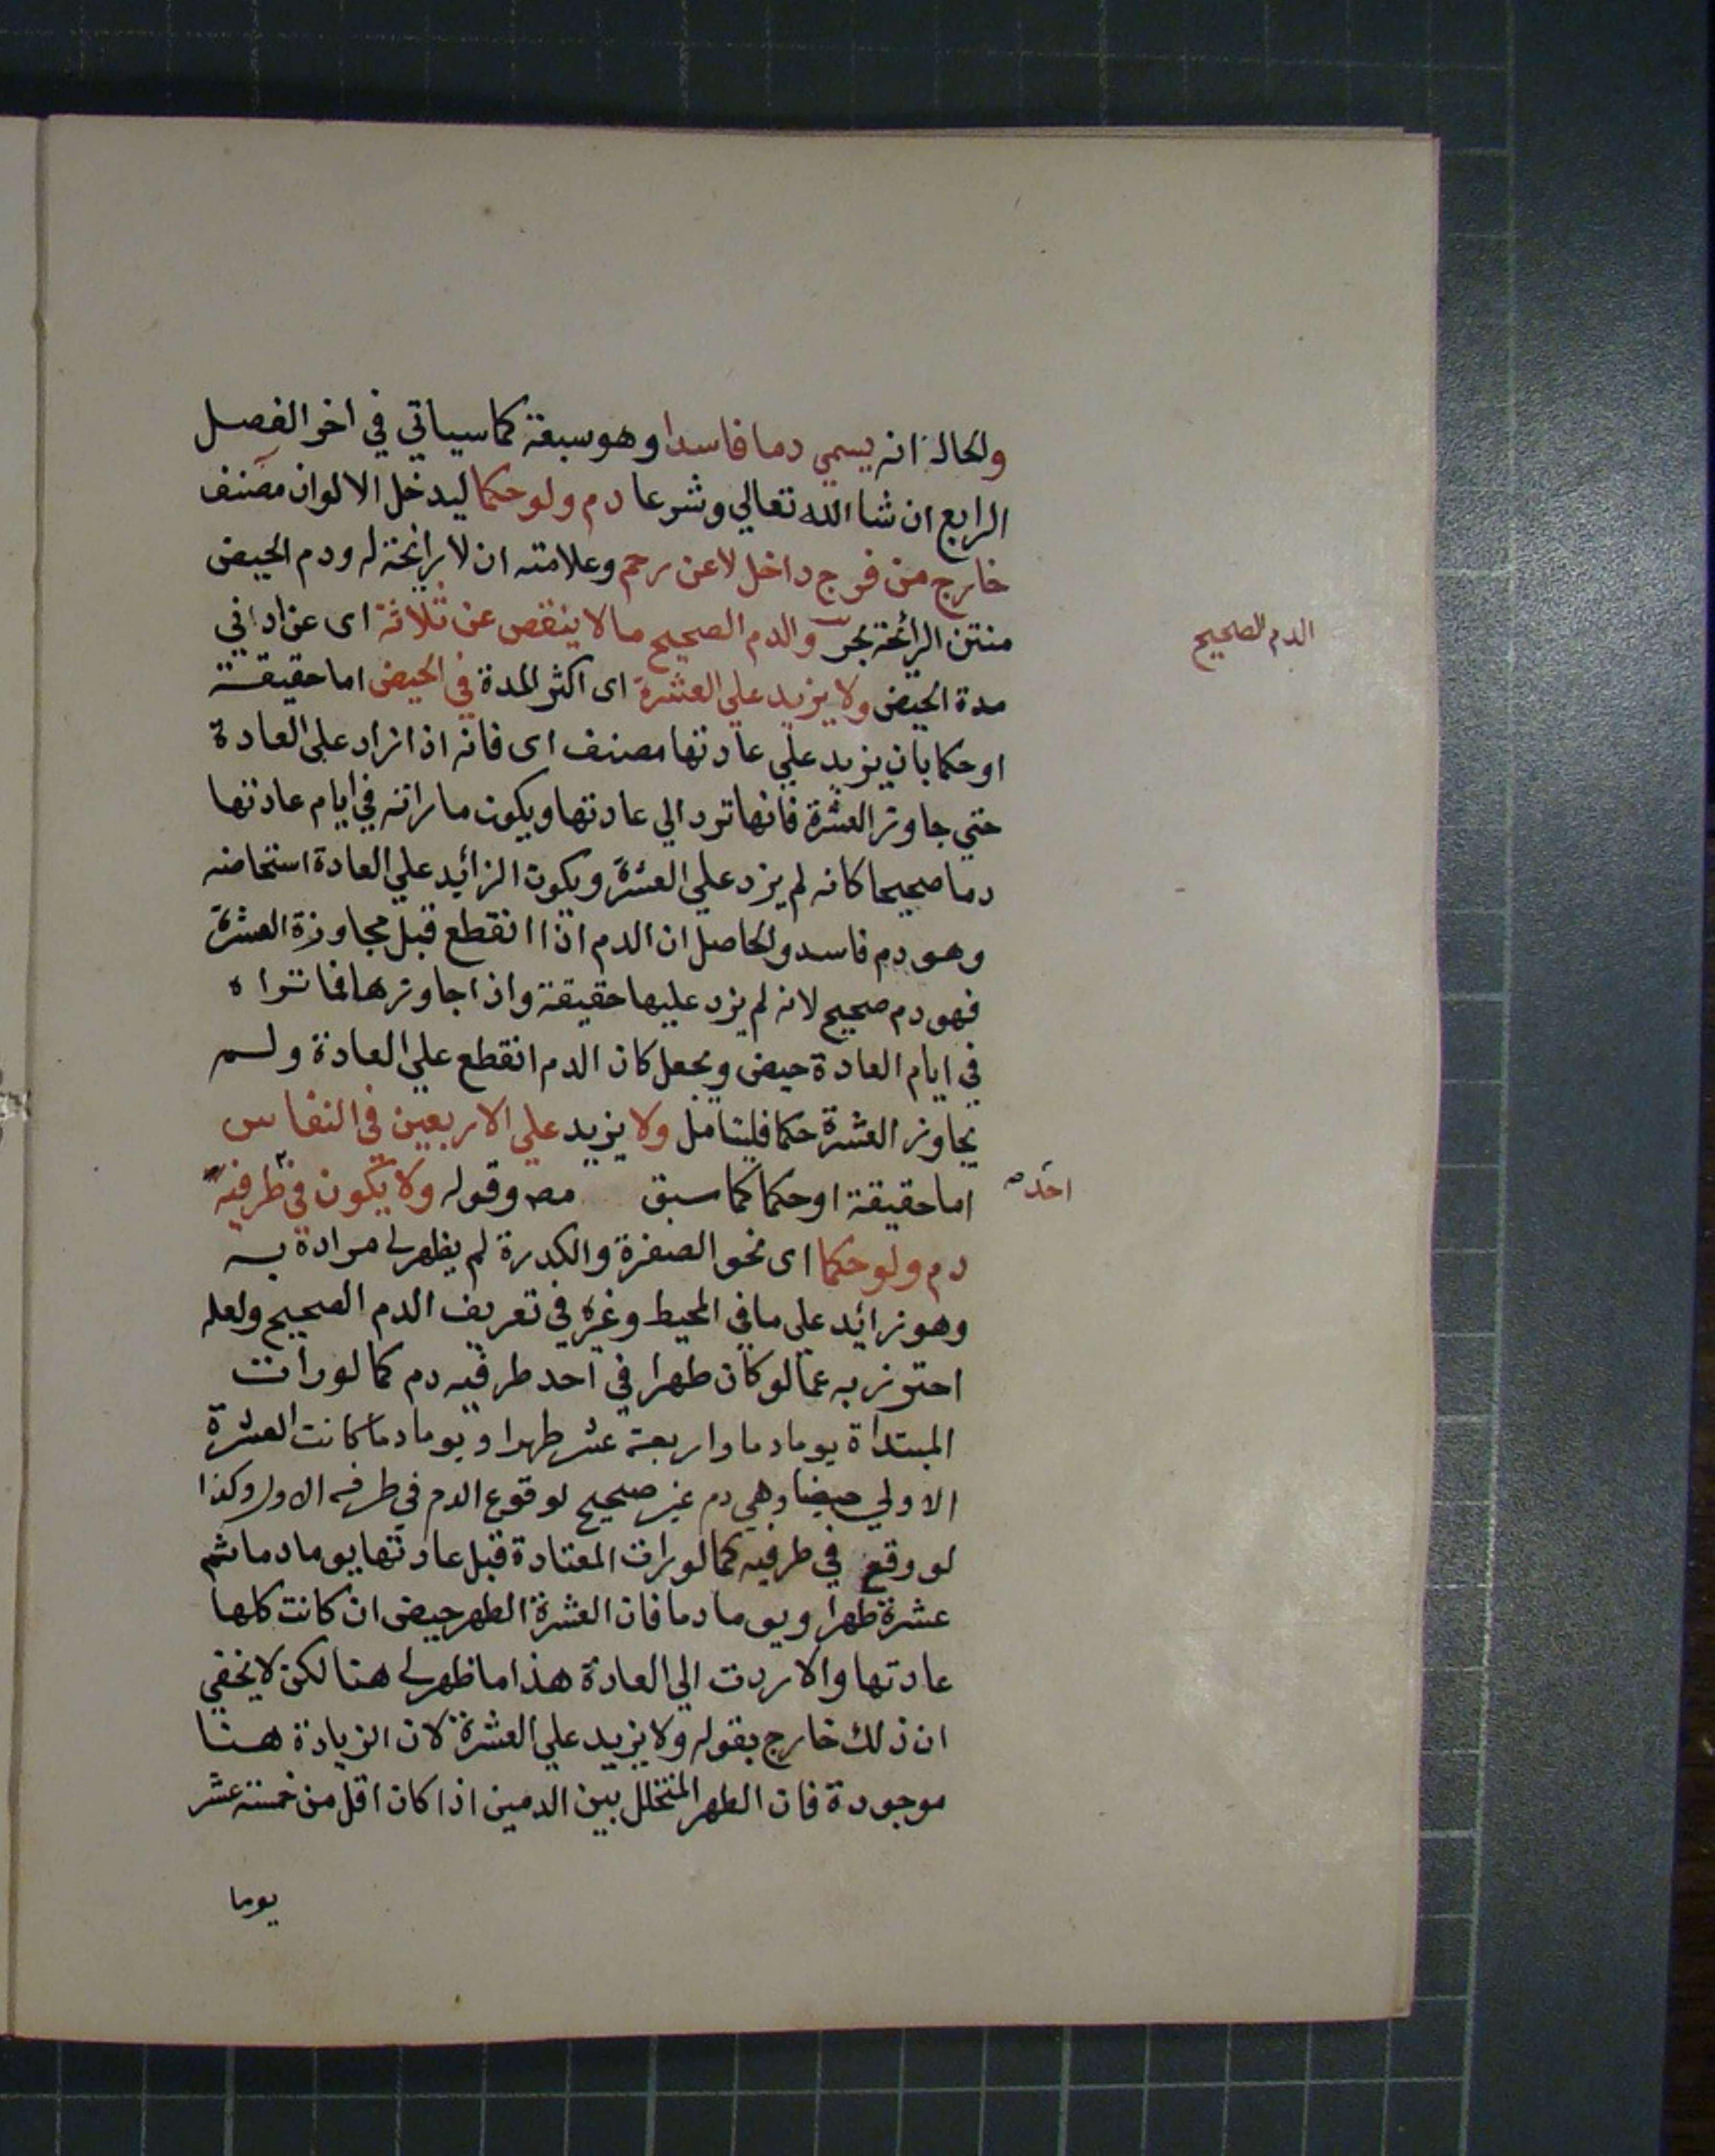 والحال انه يسمي دما فاسدا وهو سبعة كما سياتي في اخر الفصل
الرابع ان شا الله تعالي وشرعا دم ولو حكما ليدخل الالوان مصنف
خارج من فرج داخل لا عن رحم وعلامته ان لا رائحة له ودم الحيض
منتن الرائحة بحر والدم الصحيح ما لا ينقص عن ثلاثة اى عن ادني
الدم الصحيح
مدة الحيض ولا يزيد علي العشرة اى اكثر المدة في الحيض اما حقيقة
او حكما بان يزيد علي عادتها مصنف اى فانه اذا زاد علي العادة
حتي جاوز العشرة فانها ترد الي عادتها ويكون ما راته في ايام عادتها
دما صحيحا كانه لم يزد علي العشرة ويكون الزائيد علي العادة استحاضه
وهو دم فاسد والحاصل ان الدم اذا انقطع قبل مجاوزة العشرة
فهو دم صحيح لانه لم يزد عليها حقيقة واذا جاوزها فما تراه
في ايام العادة حيض ويجعل كان الدم انقطع علي العادة ولم
يجاوز العشرة حكما فليتامل ولا يزيد علي الاربعين في النفاس
اما حقيقة او حكما كما سبق مصه وقوله ولا يكون في طرفيه
احد صـ
دم ولو حكما اى نحو الصفرة والكدرة لم يظهر لي مراده به
وهو زائيد علي ما في المحيط وغيره في تعريف الدم الصحيح ولعله
احترز به عما لو كان طهرا في احد طرفيه دم كما لو رات
المبتداة يوما دما واربعة عشر طهرا ويوما دما كانت العشرة
الاولي حيضا وهي دم غير صحيح لوقوع الدم في طرفه الاول وكذا
لو وقع في طرفيه كما لو رات المعتادة قبل عادتها يوما دما ثم
عشرة طهرا ويوما دما فان العشرة الطهر حيض ان كانت كلها
عادتها والا ردت الي العادة هذا ما ظهر لي هنا لكن لا يخفي
ان ذلك خارج بقوله ولا يزيد علي العشرة لان الزيادة هنا
موجودة فان الطهر المتخلل بين الدمين اذا كان اقل من خمسة عشر
يوما